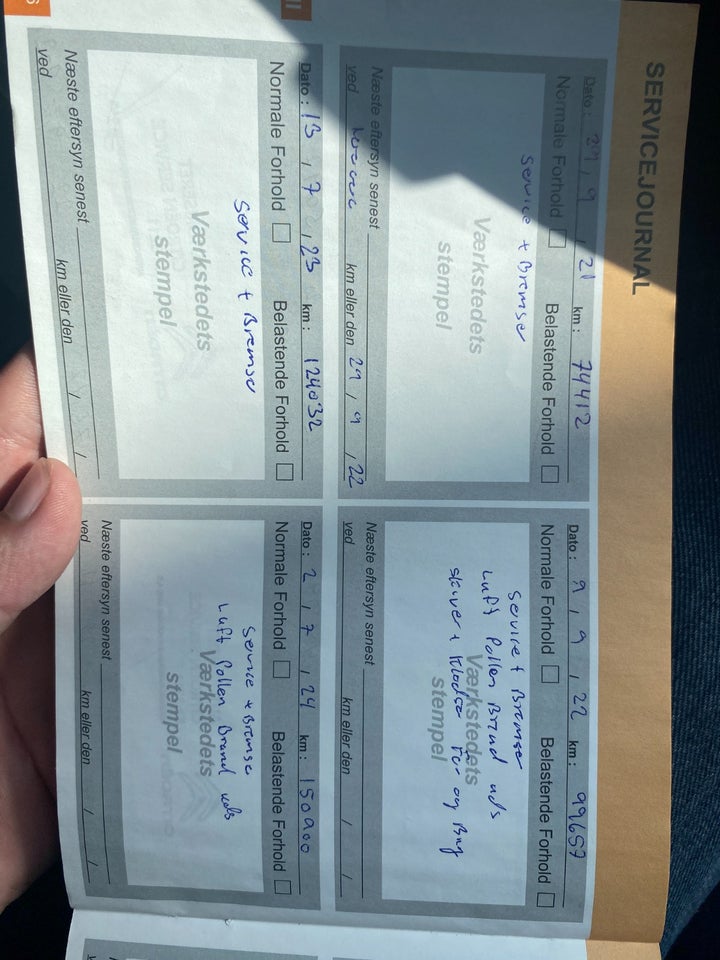 SERVICEJOURNAL
Dato: 29, 9, 21 km: 74412
Normale Forhold Belastende Forhold
Service + Bremser
Værkstedets
stempel
Næste eftersyn senest
ved km eller den 29, 9, 22
Dato: 9, 9, 22 km: 99657
Normale Forhold Belastende Forhold
Service + Bremser
Luft Pollen Brænd uds
skiver + klodser For og Bag
Værkstedets
stempel
Næste eftersyn senest
ved km eller den / /
Dato: 13, 7, 23 km: 124032
Normale Forhold Belastende Forhold
Service + Bremser
Værkstedets
stempel
Næste eftersyn senest
ved km eller den / /
Dato: 2, 7, 24 km: 150900
Normale Forhold Belastende Forhold
Service + Bremse
Luft Pollen Brænd uds
Værkstedets
stempel
Næste eftersyn senest
ved km eller den / /